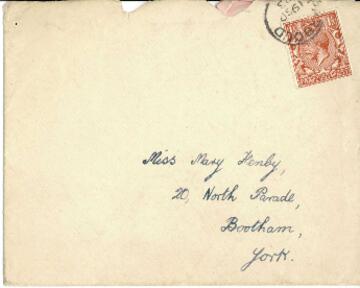 Miss Mary Henby,
20, North Parade,
Bootham,
York.